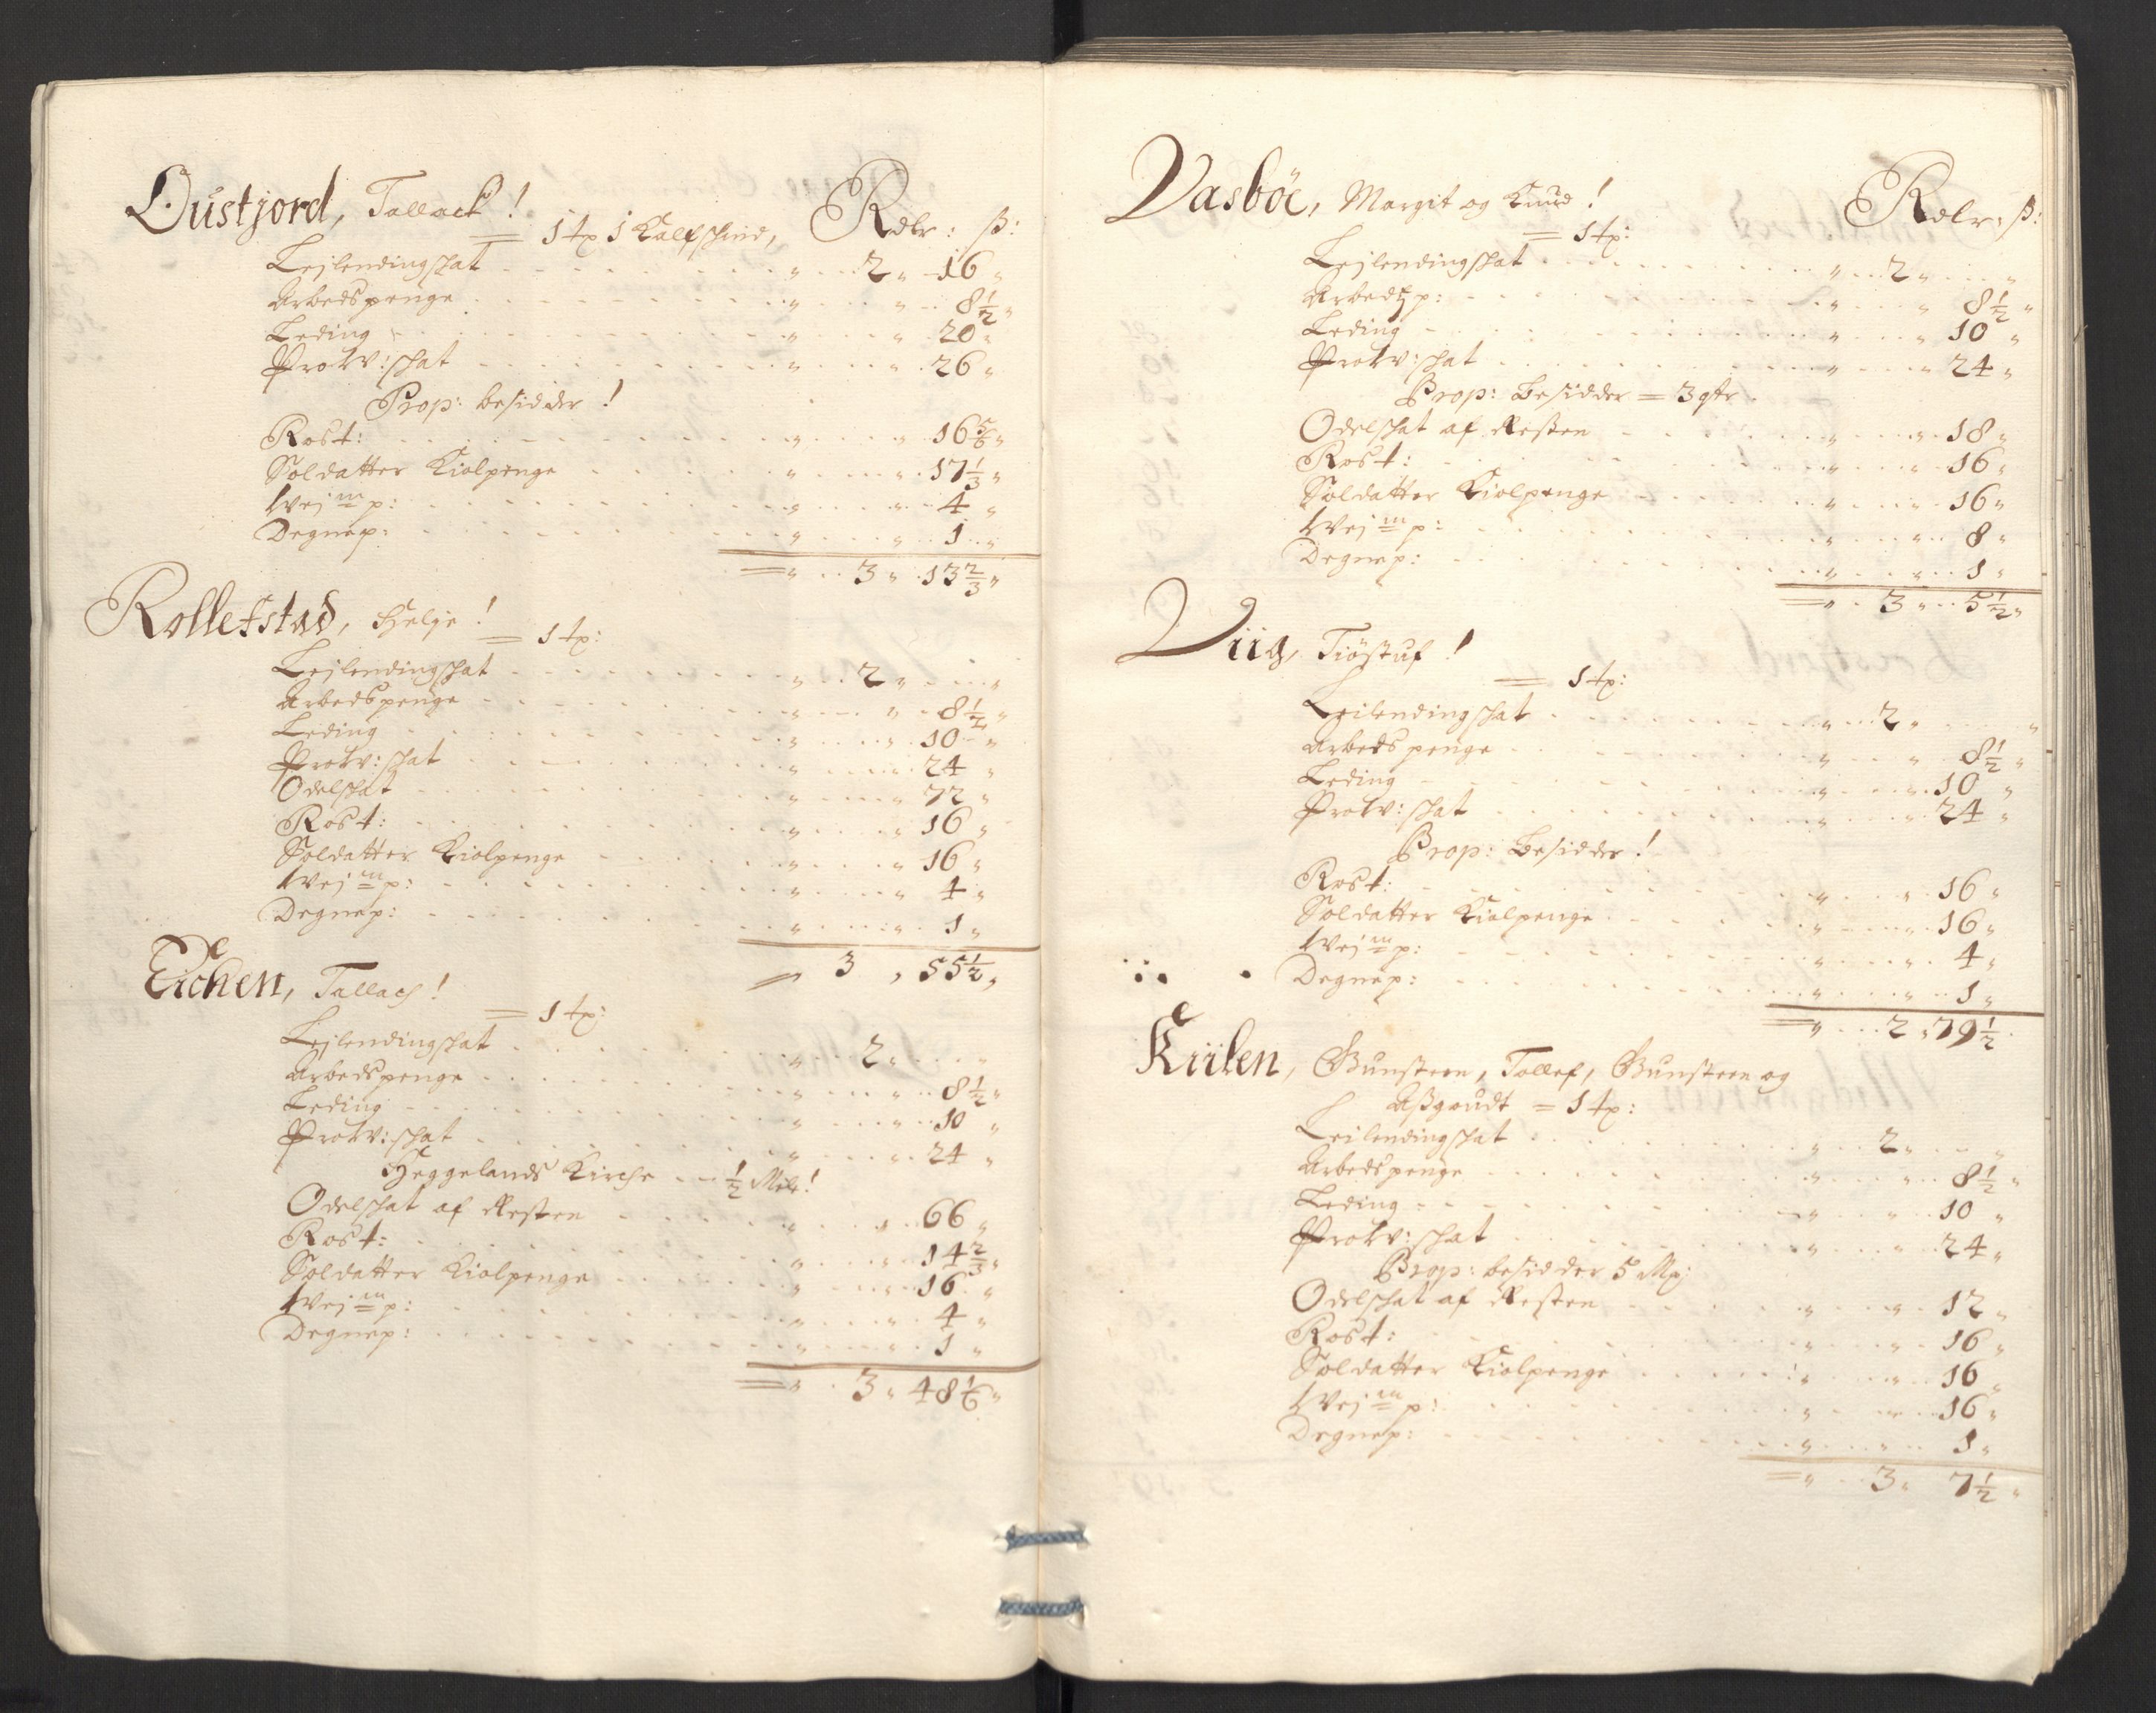 Oustjord, Tallack! Rdlr: ß:
= 1 tp 1 Kalfschind,
Lejlendingschat " 2 " 16 "
Arbedspenge " " 8 1/2 "
Leding " " 20 "
Prow:schat " " 26 "
Prop: besidder!
Rost: " " 16 5/6 "
Soldatter Kiolpenge " " 17 1/3 "
Wej m p: " " 4 "
Degnep: " " 1 "
= " 3 " 13 2/3 "
Rollefstad, Helje!
= 1 tp:
Lejlendingschat " 2 " "
Arbedspenge " " 8 1/2 "
Leding " " 10 "
Prow:schat " " 24 "
Odelschat " " 72 "
Rost: " " 16 "
Soldatter Kiolpenge " " 16 "
Wej m p: " " 4 "
Degnep: " " 1 "
= 3 , 55 1/2 ,
Eichen, Tallach!
= 1 tp:
Lejlendingschat " 2 " "
Arbedspenge " " 8 1/2 "
Leding " " 10 "
Prow:schat " " 24 "
Heggelands Kirche 1/2 Mele!
Odelschat af Resten " " 66 "
Rost: " " 14 2/3 "
Soldatter Kiolpenge " " 16 "
Wej m p: " " 4 "
Degnep: " " 1 "
= " 3 " 48 1/6 "
Vasböe, Margit og Knud! Rdlr: ß:
= 1 tp:
Lejlendingschat " 2 " "
Arbedtz p: " " 8 1/2 "
Leding " " 10 "
Prow:schat " " 24 "
Prop: Besidder = 3 qtr
Odelschat af Resten " " 18 "
Rost: " " 16 "
Soldatter Kiolpenge " " 16 "
Wej m p: " " 8 "
Degnep: " " 1 "
= " 3 " 5 1/2 "
Viig, Tiöstuf!
= 1 tp:
Leilendingschat " 2 " "
Arbedspenge " " 8 1/2 "
Leding " " 10 "
Prow:schat " " 24 "
Prop: Besidder!
Rost: " " 16 "
Soldatter Kiolpenge " " 16 "
Wej m p: " " 4 "
Degnep: " " 1 "
= " 2 " 79 1/2
Kiilen, Gunsteen, Tollef, Gunsteen og
Aßgoudt = 1 tp:
Leilendingschat " 2 " "
Arbedspenge " " 8 1/2 "
Leding " " 10 "
Prow:schat " " 24 "
Prop: besidder 5 Mp:
Odelschat af Resten " " 12 "
Rost: " " 16 "
Soldatter Kiolpenge " " 16 "
Wej m p: " " 16 "
Degnep: " " 1 "
= " 3 " 7 1/2 "